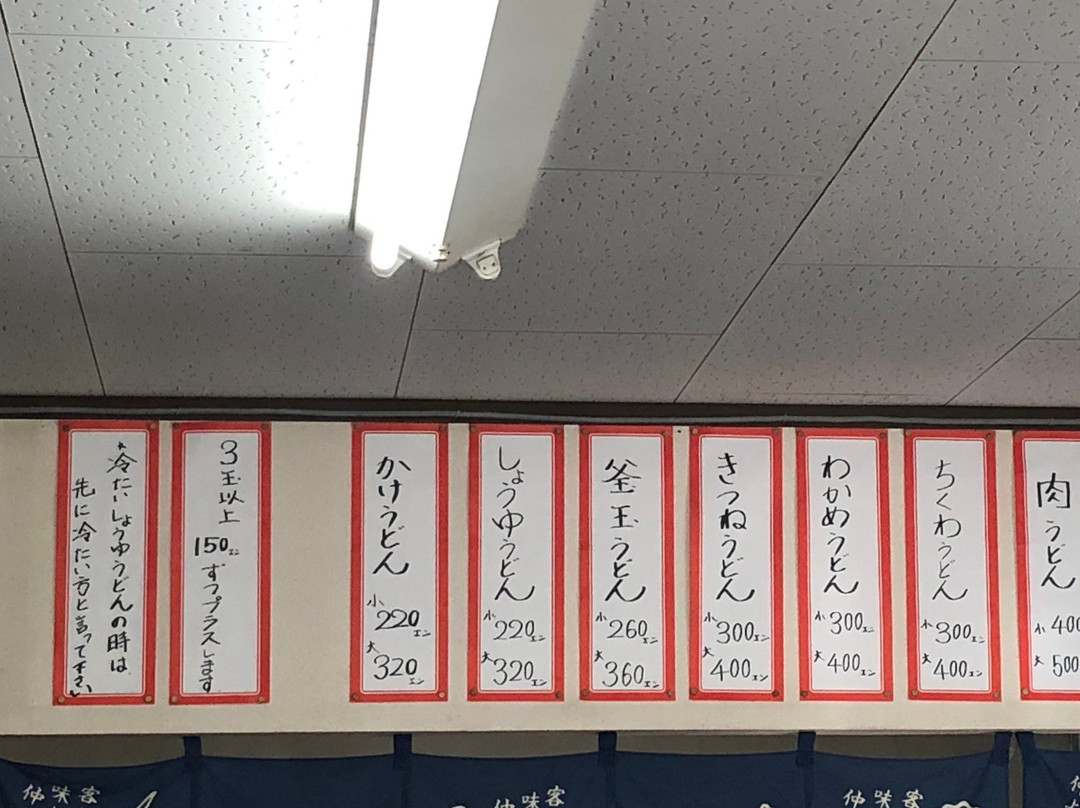 *冷たいしょうゆうどんの時は
先に冷たい方と言って下さい
3玉以上
150エン
ずつプラスします
かけうどん
小220エン
大320エン
しょうゆうどん
小220エン
大320エン
釜玉うどん
小260エン
大360エン
きつねうどん
小300エン
大400エン
わかめうどん
小300エン
大400エン
ちくわうどん
小300エン
大400エン
肉うどん
小400
大500